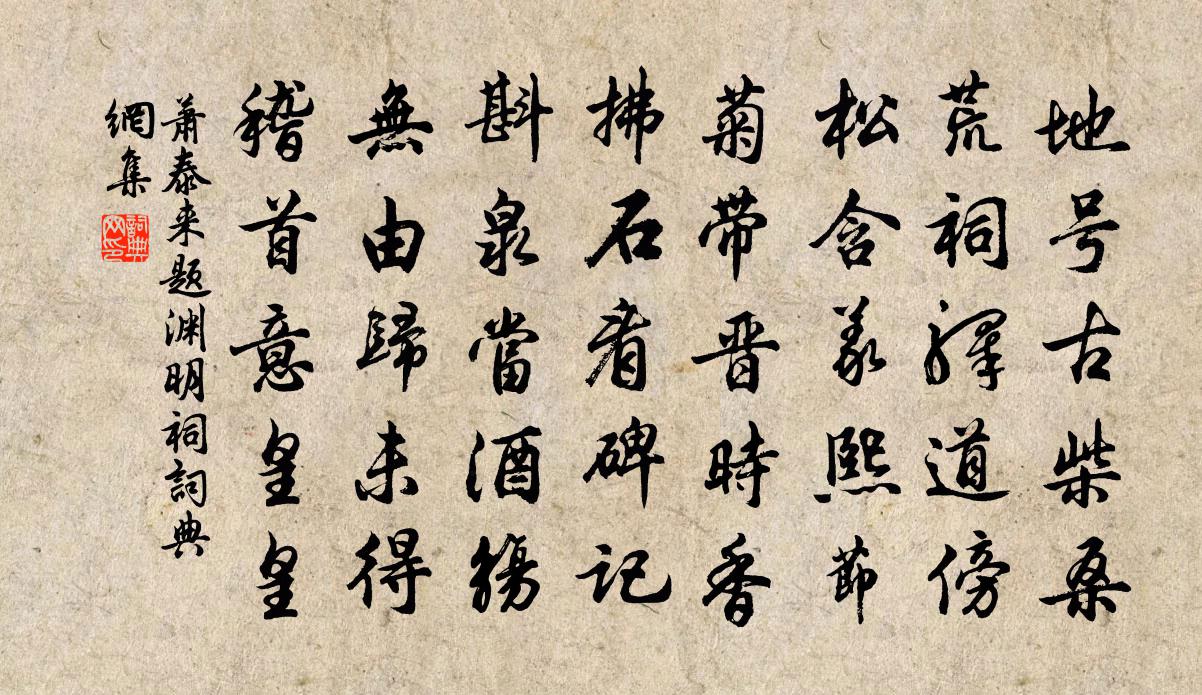 地号古柴桑
荒祠驿道傍
松含羲熙節
菊带晋時香
拂石看碑記
斟泉當酒觴
無由歸未得
稽首意皇皇
萧泰来题渊明祠詞典
網集
詞典網印